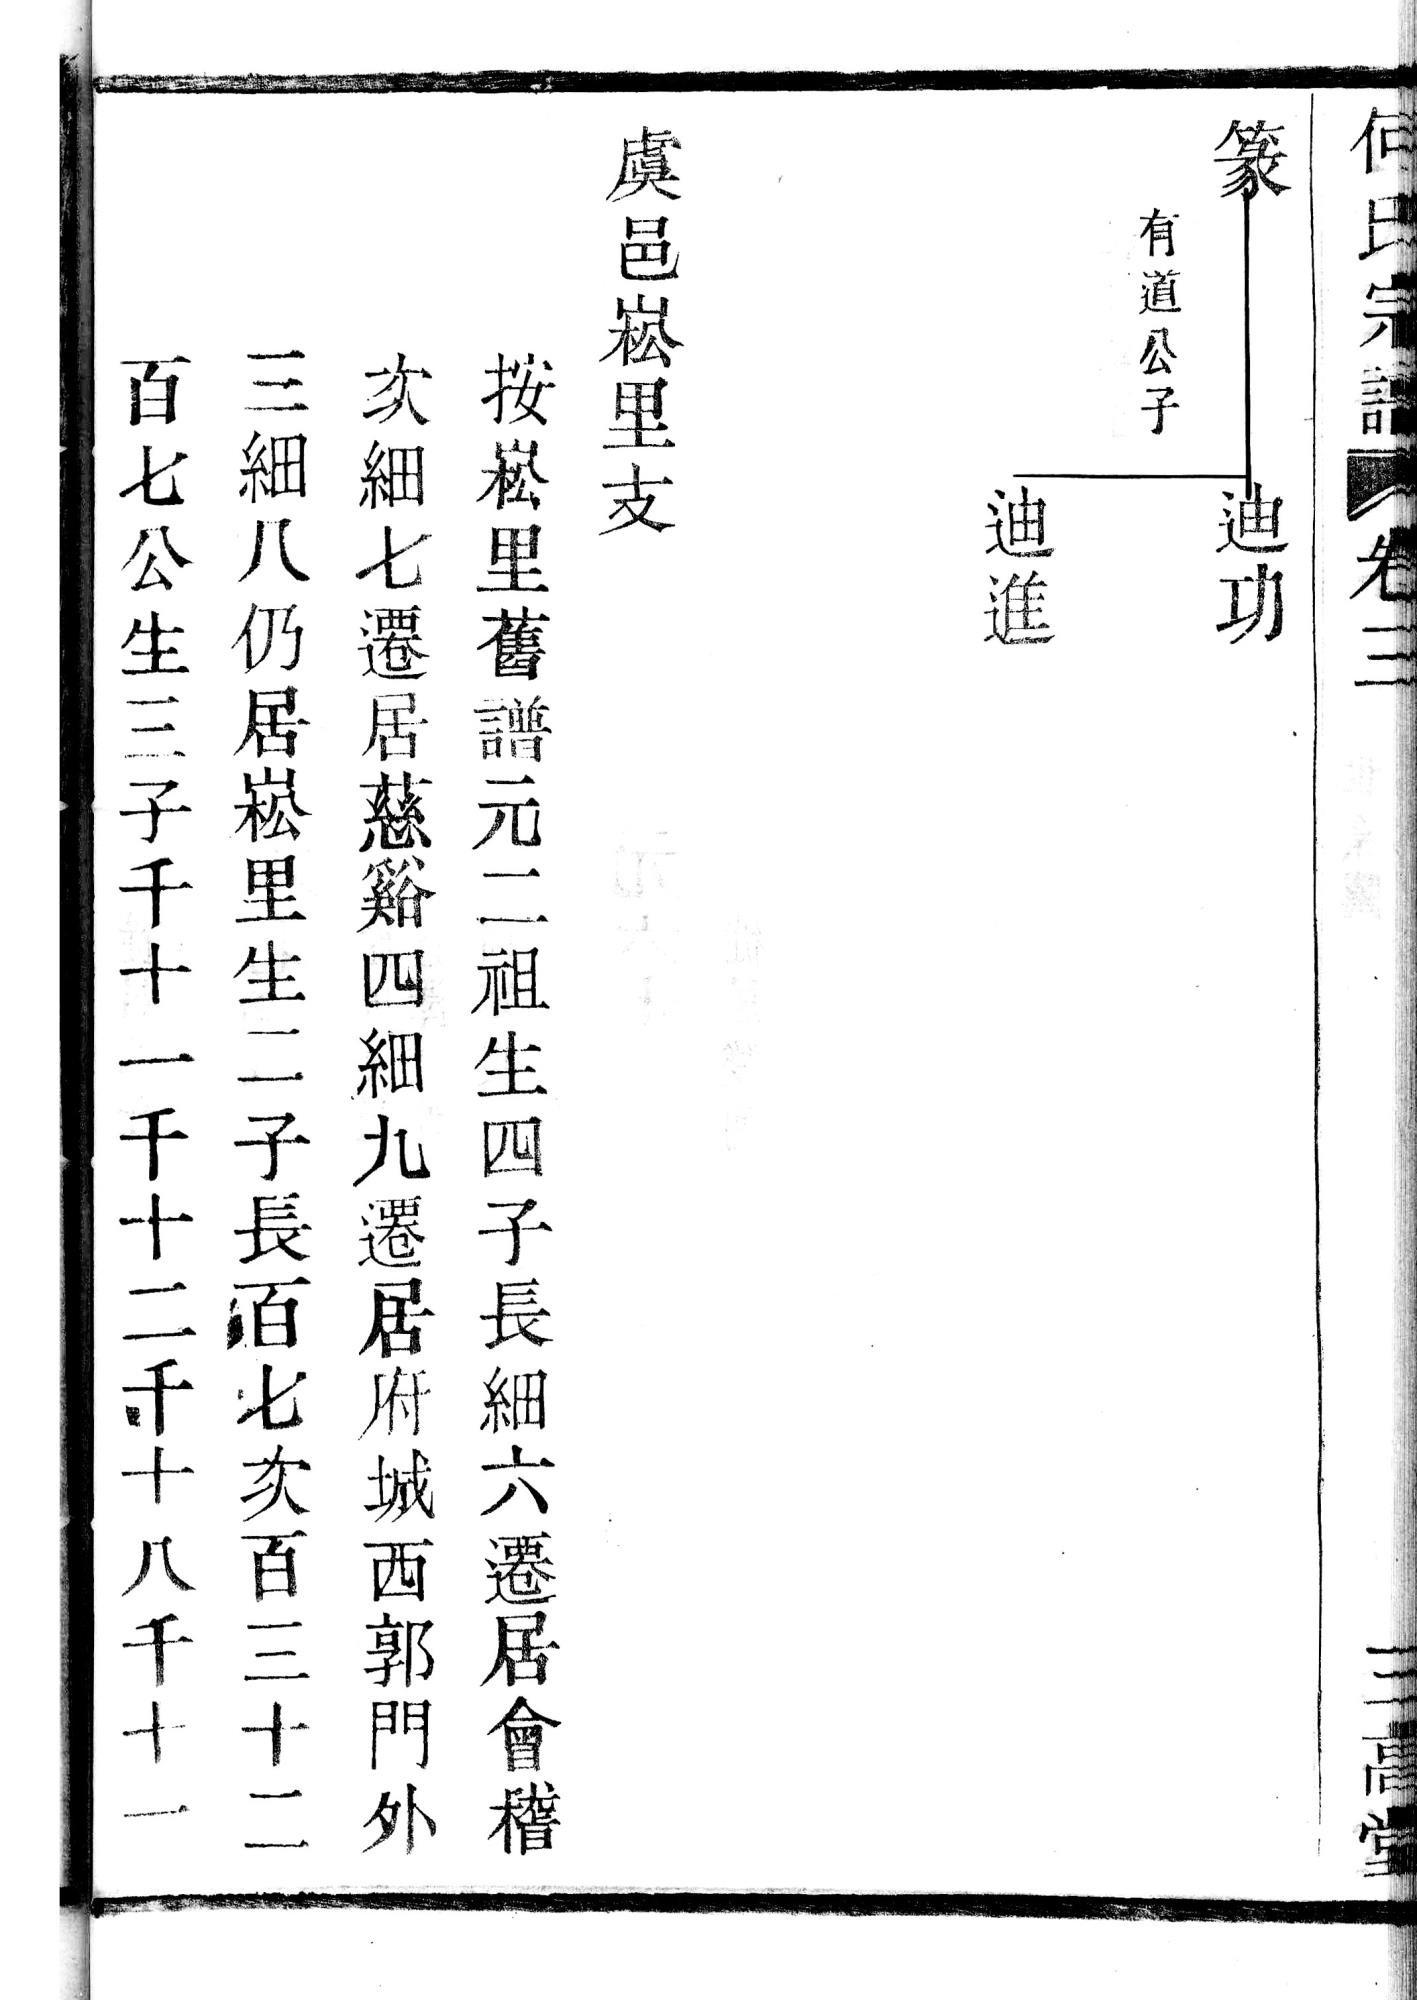 何氏宗譜 卷三 三高堂
篆
有道公子
迪功
迪進
虞邑崧里支
按崧里舊譜元二祖生四子長細六遷居會稽
次細七遷居慈谿四細九遷居府城西郭門外
三細八仍居崧里生二子長百七次百三十二
百七公生三子千十一千十二千十八千十一